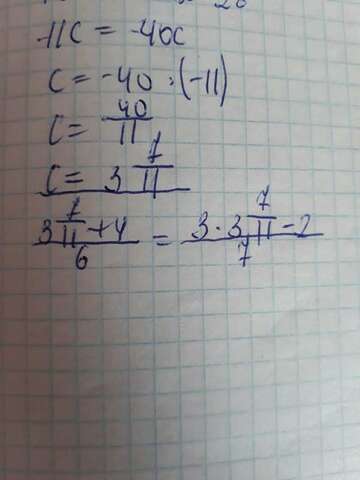 -11c = -40c
c = -40 : (-11)
c = 40/11
c = 3 7/11
(3 7/11 + 4)/6 = (3 · 3 7/11 - 2)/7